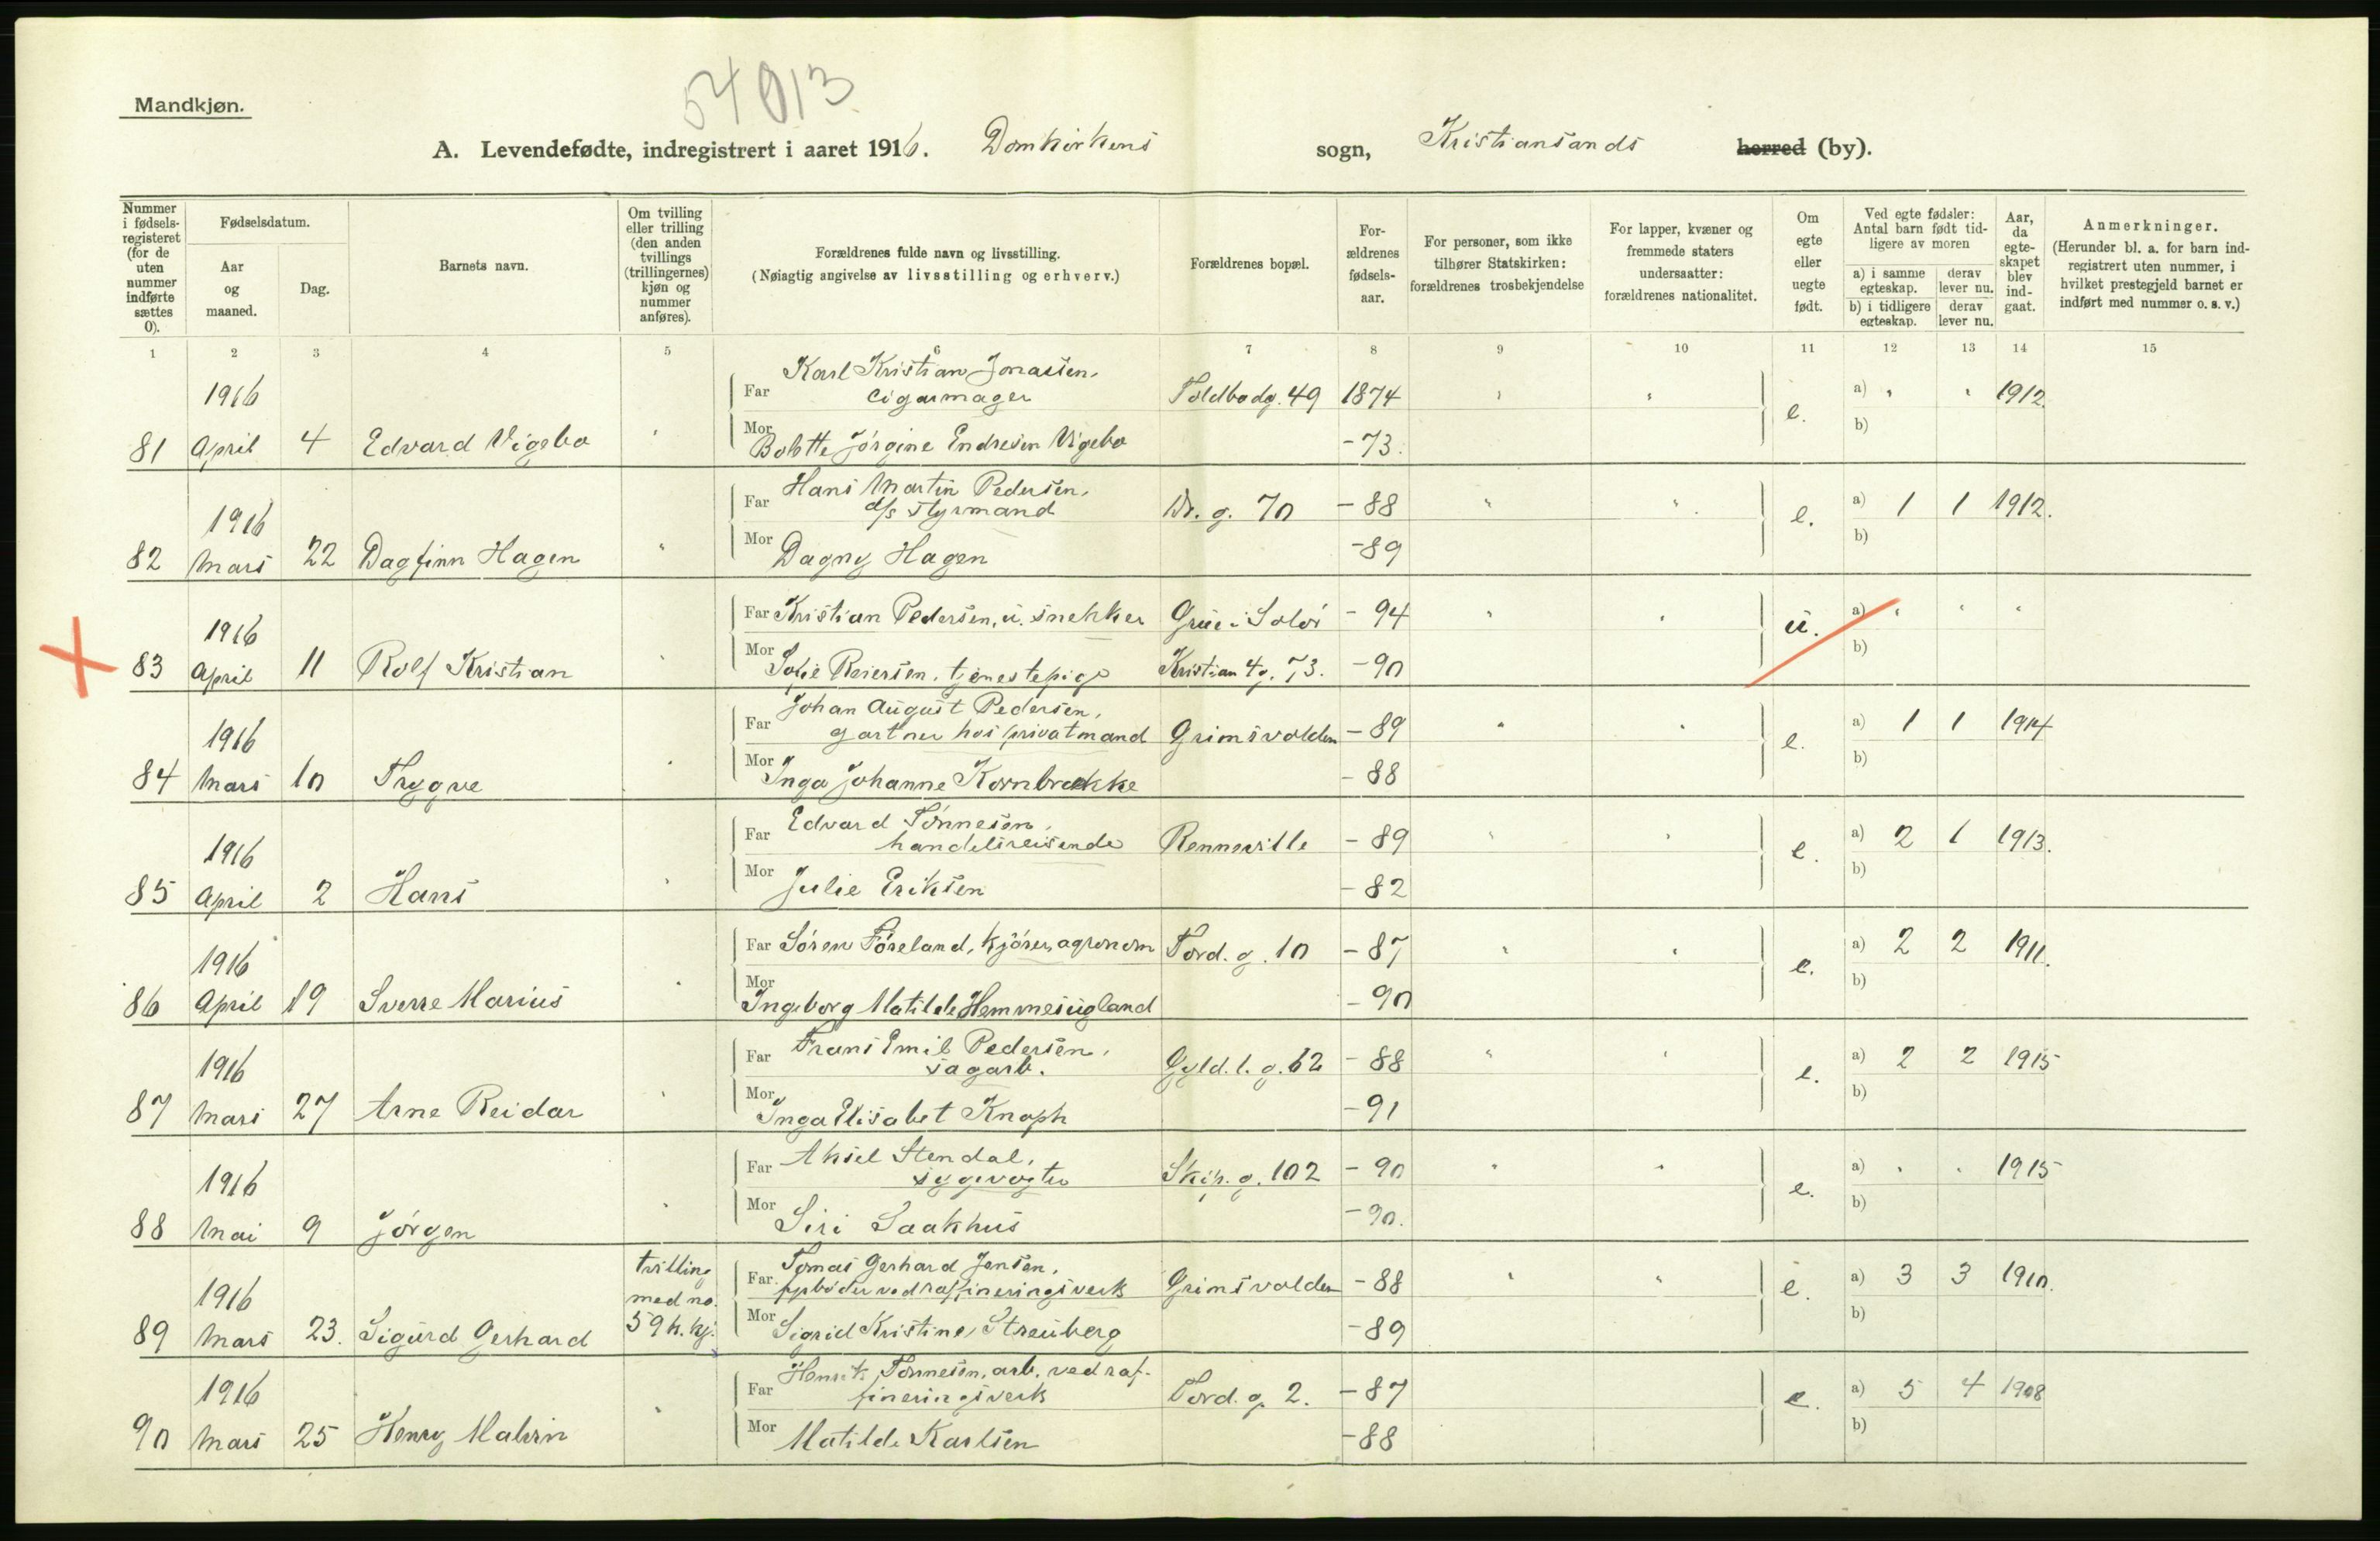 54013
Mandkjøn.
A. Levendefødte, indregistrert i aaret 1916. Domkirkens sogn, Kristiansands herred (by).
Nummer i fødselsregisteret (for de uten nummer indførte sættes 0).
Fødselsdatum.
Aar og maaned.
Dag.
Barnets navn.
Om tvilling eller trilling (den anden tvillings (trillingernes) kjøn og nummer anføres).
Forældrenes fulde navn og livsstilling.
(Nøiagtig angivelse av livsstilling og erhverv.)
Forældrenes bopæl.
Forældrenes fødselsaar.
For personer, som ikke tilhører Statskirken: forældrenes trosbekjendelse
For lapper, kvæner og fremmede staters undersaatter: forældrenes nationalitet.
Om egte eller uegte født.
Ved egte fødsler: Antal barn født tidligere av moren
a) i samme egteskap. derav lever nu.
b) i tidligere egteskap. derav lever nu.
Aar, da egteskapet blev indgaat.
Anmerkninger.
(Herunder bl. a. for barn indregistrert uten nummer, i hvilket prestegjeld barnet er indført med nummer o. s. v.)
1 2 3 4 5 6 7 8 9 10 11 12 13 14 15
1916
Far Karl Kristian Jonassen,
cigarmager Toldbodg. 49 1874 " " e. a) " " 1912.
81 April 4 Edvard Vigebo "
Mor Bolette Jørgine Endresen Vigebo -73. b)
1916
Far Hans Martin Pedersen,
d/s styrmand Dr. g. 70 -88 " " e. a) 1 1 1912.
82 Mars 22 Dagfinn Hagen "
Mor Dagny Hagen -89 b)
1916
Far Kristian Pedersen, u. snekker Grue i Solør -94 " " u. a) " " "
83 April 11 Rolf Kristian "
Mor Sofie Reiersen, tjenestepige Kristian 4 g. 73. -90 b)
1916
Far Johan August Pedersen,
gartner hos privatmand Grimsvolden -89 " " e. a) 1 1 1914
84 Mars 10 Trygve "
Mor Inga Johanne Kornbrekke -88 b)
1916
Far Edvard Tønnesen,
handelsreisende Rennesville -89 " " e. a) 2 1 1913.
85 April 2 Hans "
Mor Julie Eriksen -82 b)
1916
Far Søren Føreland, kjører, agronom Tord. g. 10 -87 " " e. a) 2 2 1911.
86 April 19 Sverre Marius "
Mor Ingeborg Matilde Hemmesugland -90 b)
1916
Far Frans Emil Pedersen,
sagarb. Gyld. l. g. 62 -88 " " e. a) 2 2 1915
87 Mars 27 Arne Reidar "
Mor Inga Elisabet Knoph -91 b)
1916
Far Aksel Stendal,
sygevogter Skip. g. 102 -90 " " e. a) " " 1915
88 Mai 9 Jørgen "
Mor Siri Saakhus -90. b)
1916
tvilling med no. 59 k. kj.
Far Tomas Gerhard Jensen,
ved raffineringsverk Grimsvolden -88 " " e. a) 3 3 1910.
89 Mars 23. Sigurd Gerhard
Mor Sigrid Kristine Streuberg -89 b)
1916
Far Henrik Tønnesen, arb. ved raf-
fineringsverk Tord. g. 2. -87 e. a) 5 4 1908
90 Mars 25 Henry Malvin "
Mor Matilde Karlsen -88 b)